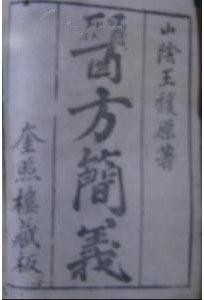 山陰王馥原著
醫方簡義
奎照樓藏板